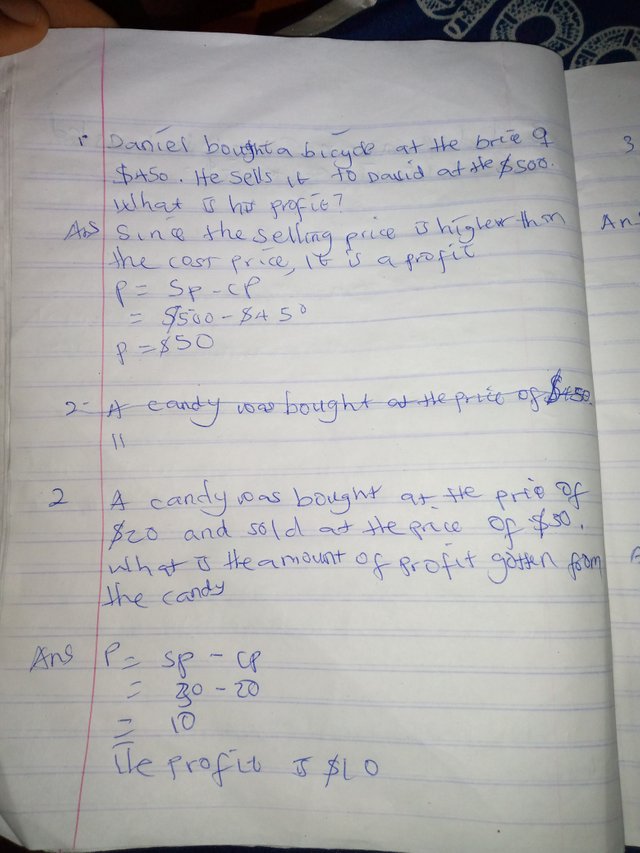 1. Daniel bought a bicycle at the price of
$450. He sells it to David at the $500.
What is his profit?
Ans Since the selling price is higher than
the cost price, it is a profit
P = Sp - CP
= $500 - $450
P = $50
2- A candy was bought at the price of $450.
11
2 A candy was bought at the prie of
$20 and sold at the price of $30.
What is the amount of profit gotten from
the candy
Ans P = SP - CP
= 30 - 20
= 10
The profit is $10
3
An